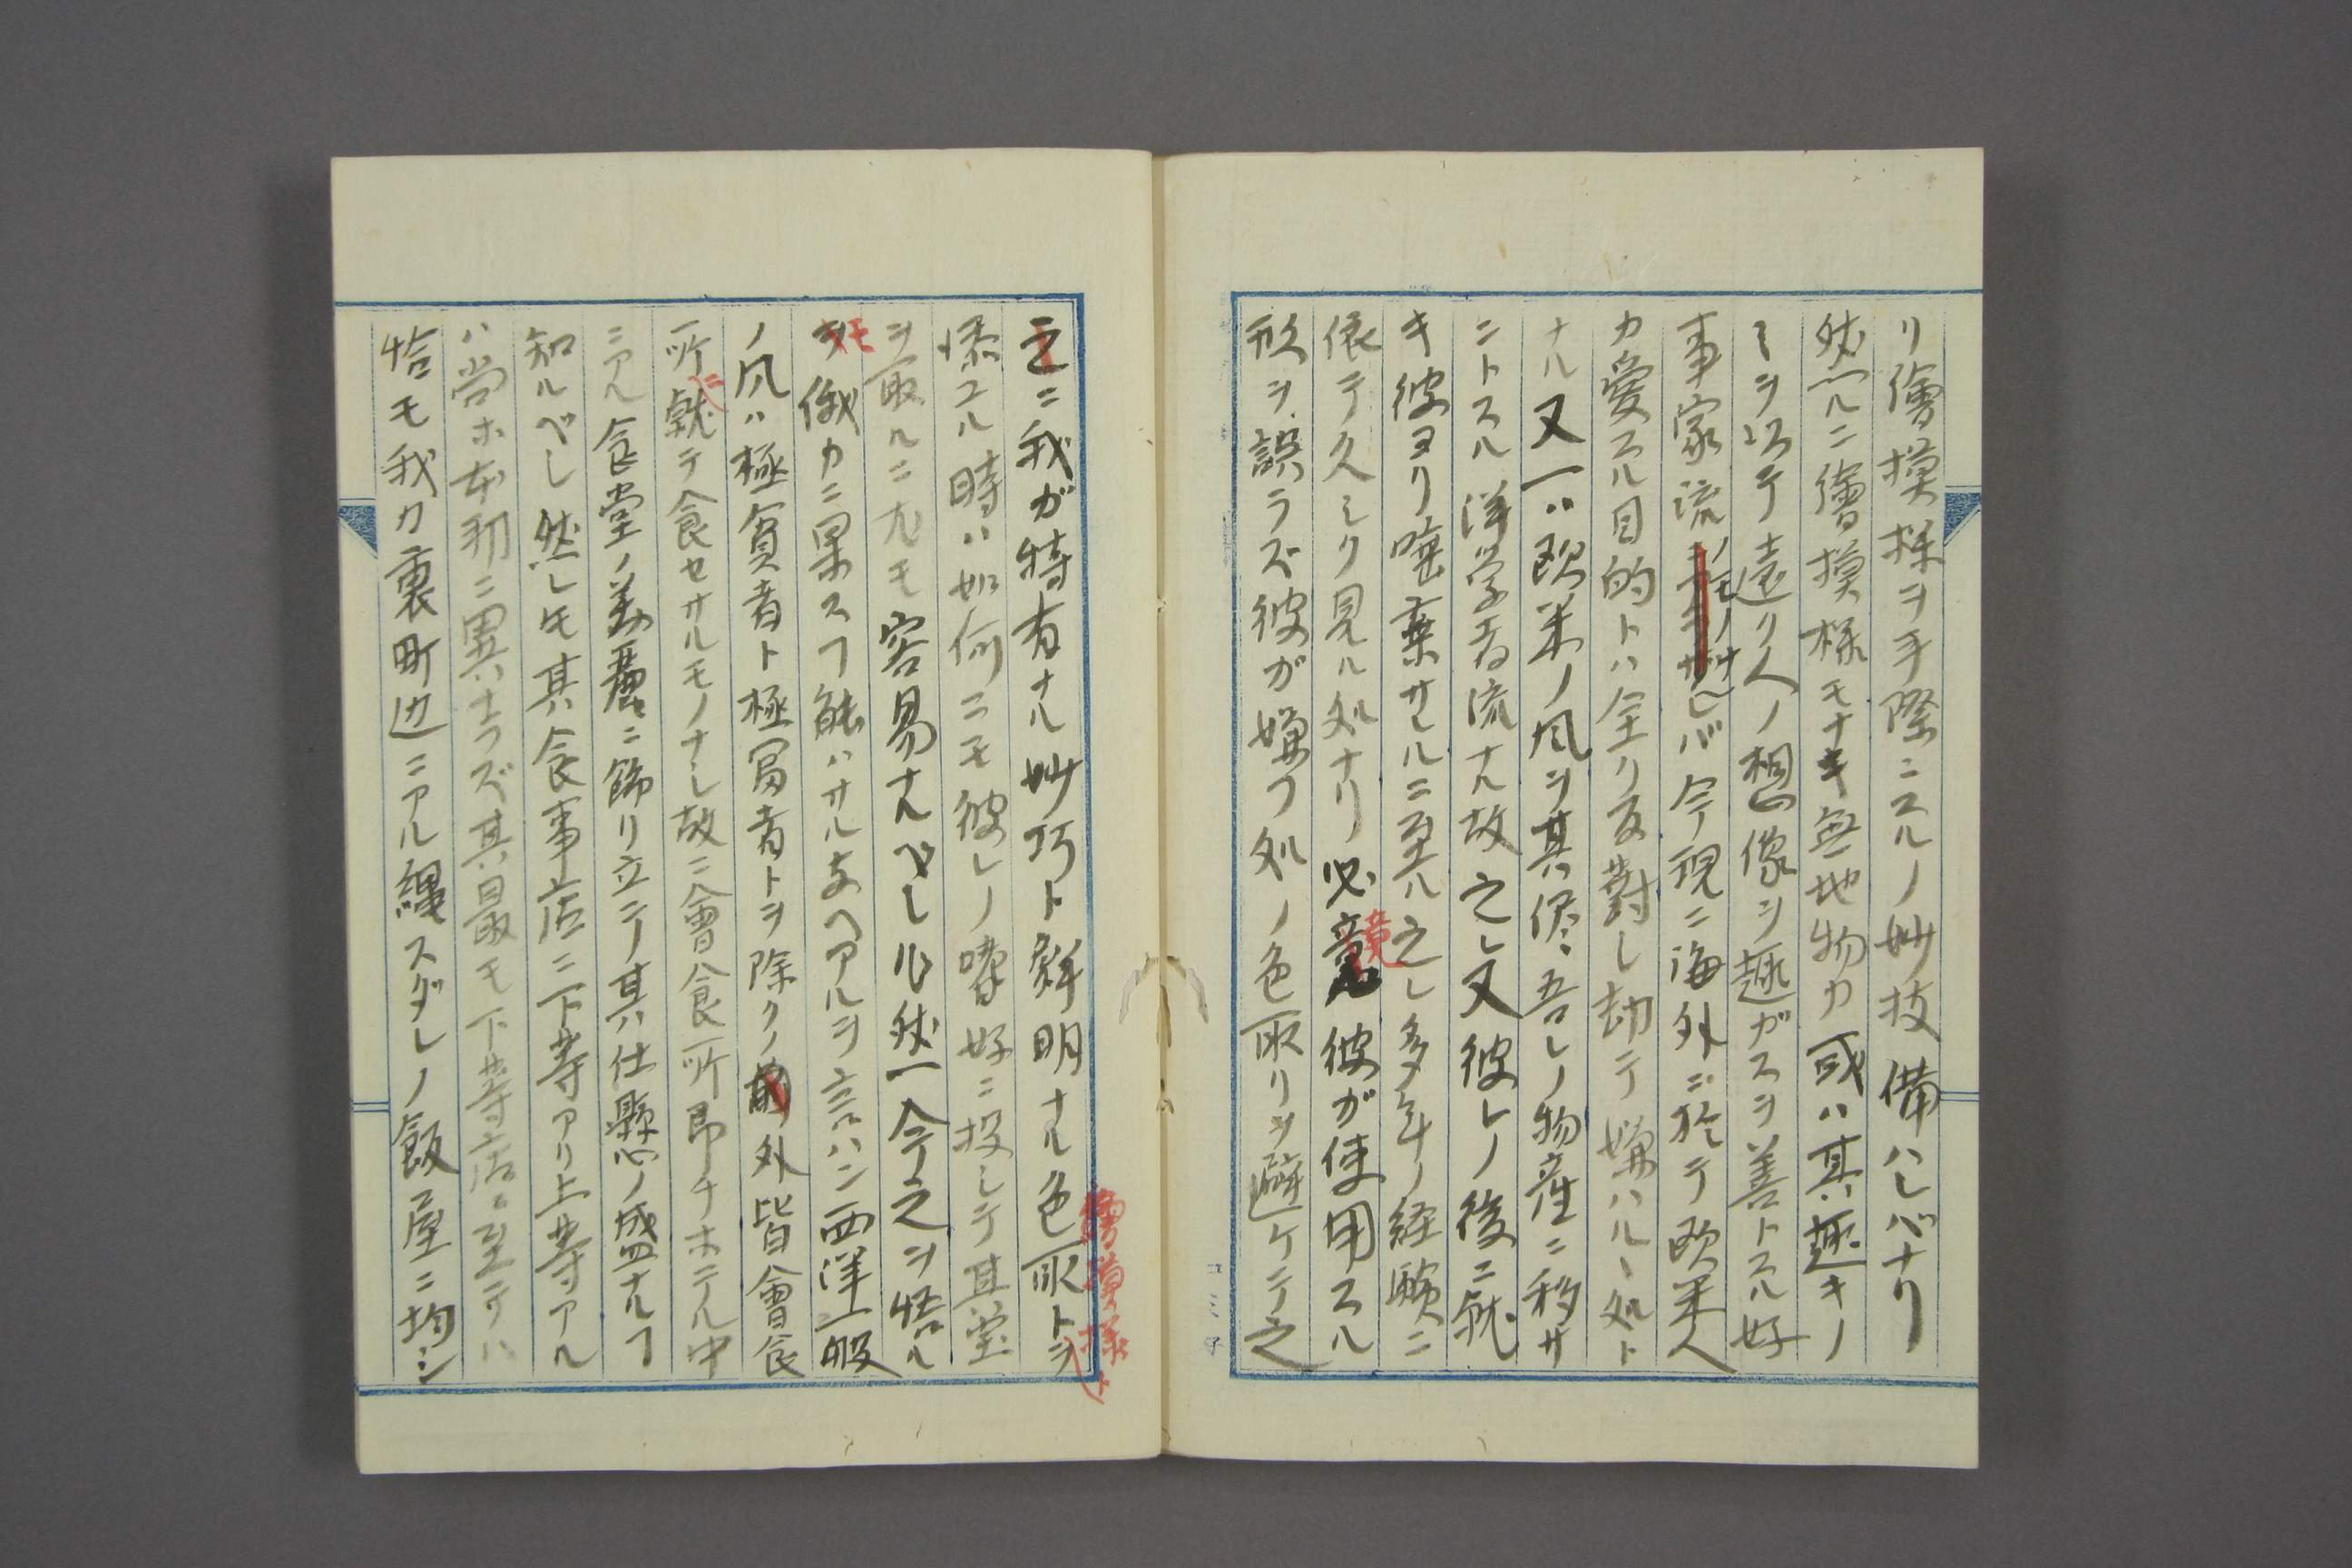 リ繪摸様ヲ手際ニスルノ妙技備ハレバナリ
然ルニ繪摸様モナキ無地物カ或ハ其趣キノ
ミヲ以テ遠リ人ノ想像ヲ趣ガスヲ善トスル好
事家流ノモノナレバ今現ニ海外ニ於テ欧米人
カ愛スル目的トハ全ク反對シ却テ嫌ハルヽ処ト
ナル又一ハ欧米ノ風ヲ其侭吾レノ物産ニ移サ
ントスル洋学者流ナル故之レ又彼レノ後ニ就
キ彼ヨリ唾棄サルルニ至ル之レ多年ノ経験ニ
依テ久シク見ル処ナリ必竟彼ガ使用スル
形ヲ誤ラズ彼が嫌フ処ノ色取リヲ避ケテ之
之ニ我ガ特有ナル妙巧ト鮮明ナル色取トヲ
繪摸様ト
添ユル時ハ如何ニモ彼レノ嗜好ニ投シテ其堂
ヲ取ルニ尤モ容易ナルベシ
然
今之ヲ悟ル
モ俄カニ果スフ能ハサル
アルヲ言ハン西洋一般
ノ風ハ極貧者ト極冨者トヲ除クノ外皆會食
所ニ就テ食セサルモノナシ故ニ會食所即チホテル中
ニアル食堂ノ美麗ニ飾リ立テノ其仕懸ノ盛ナルフ
知ルベし然レ𪜈其食事店ニ下等アリ上等アル
ハ尚ホ本邦ニ異ナラズ其最モ下等店ニ至テハ
恰モ我カ裏町辺ニアル縄スダレノ飯屋ニ均シ